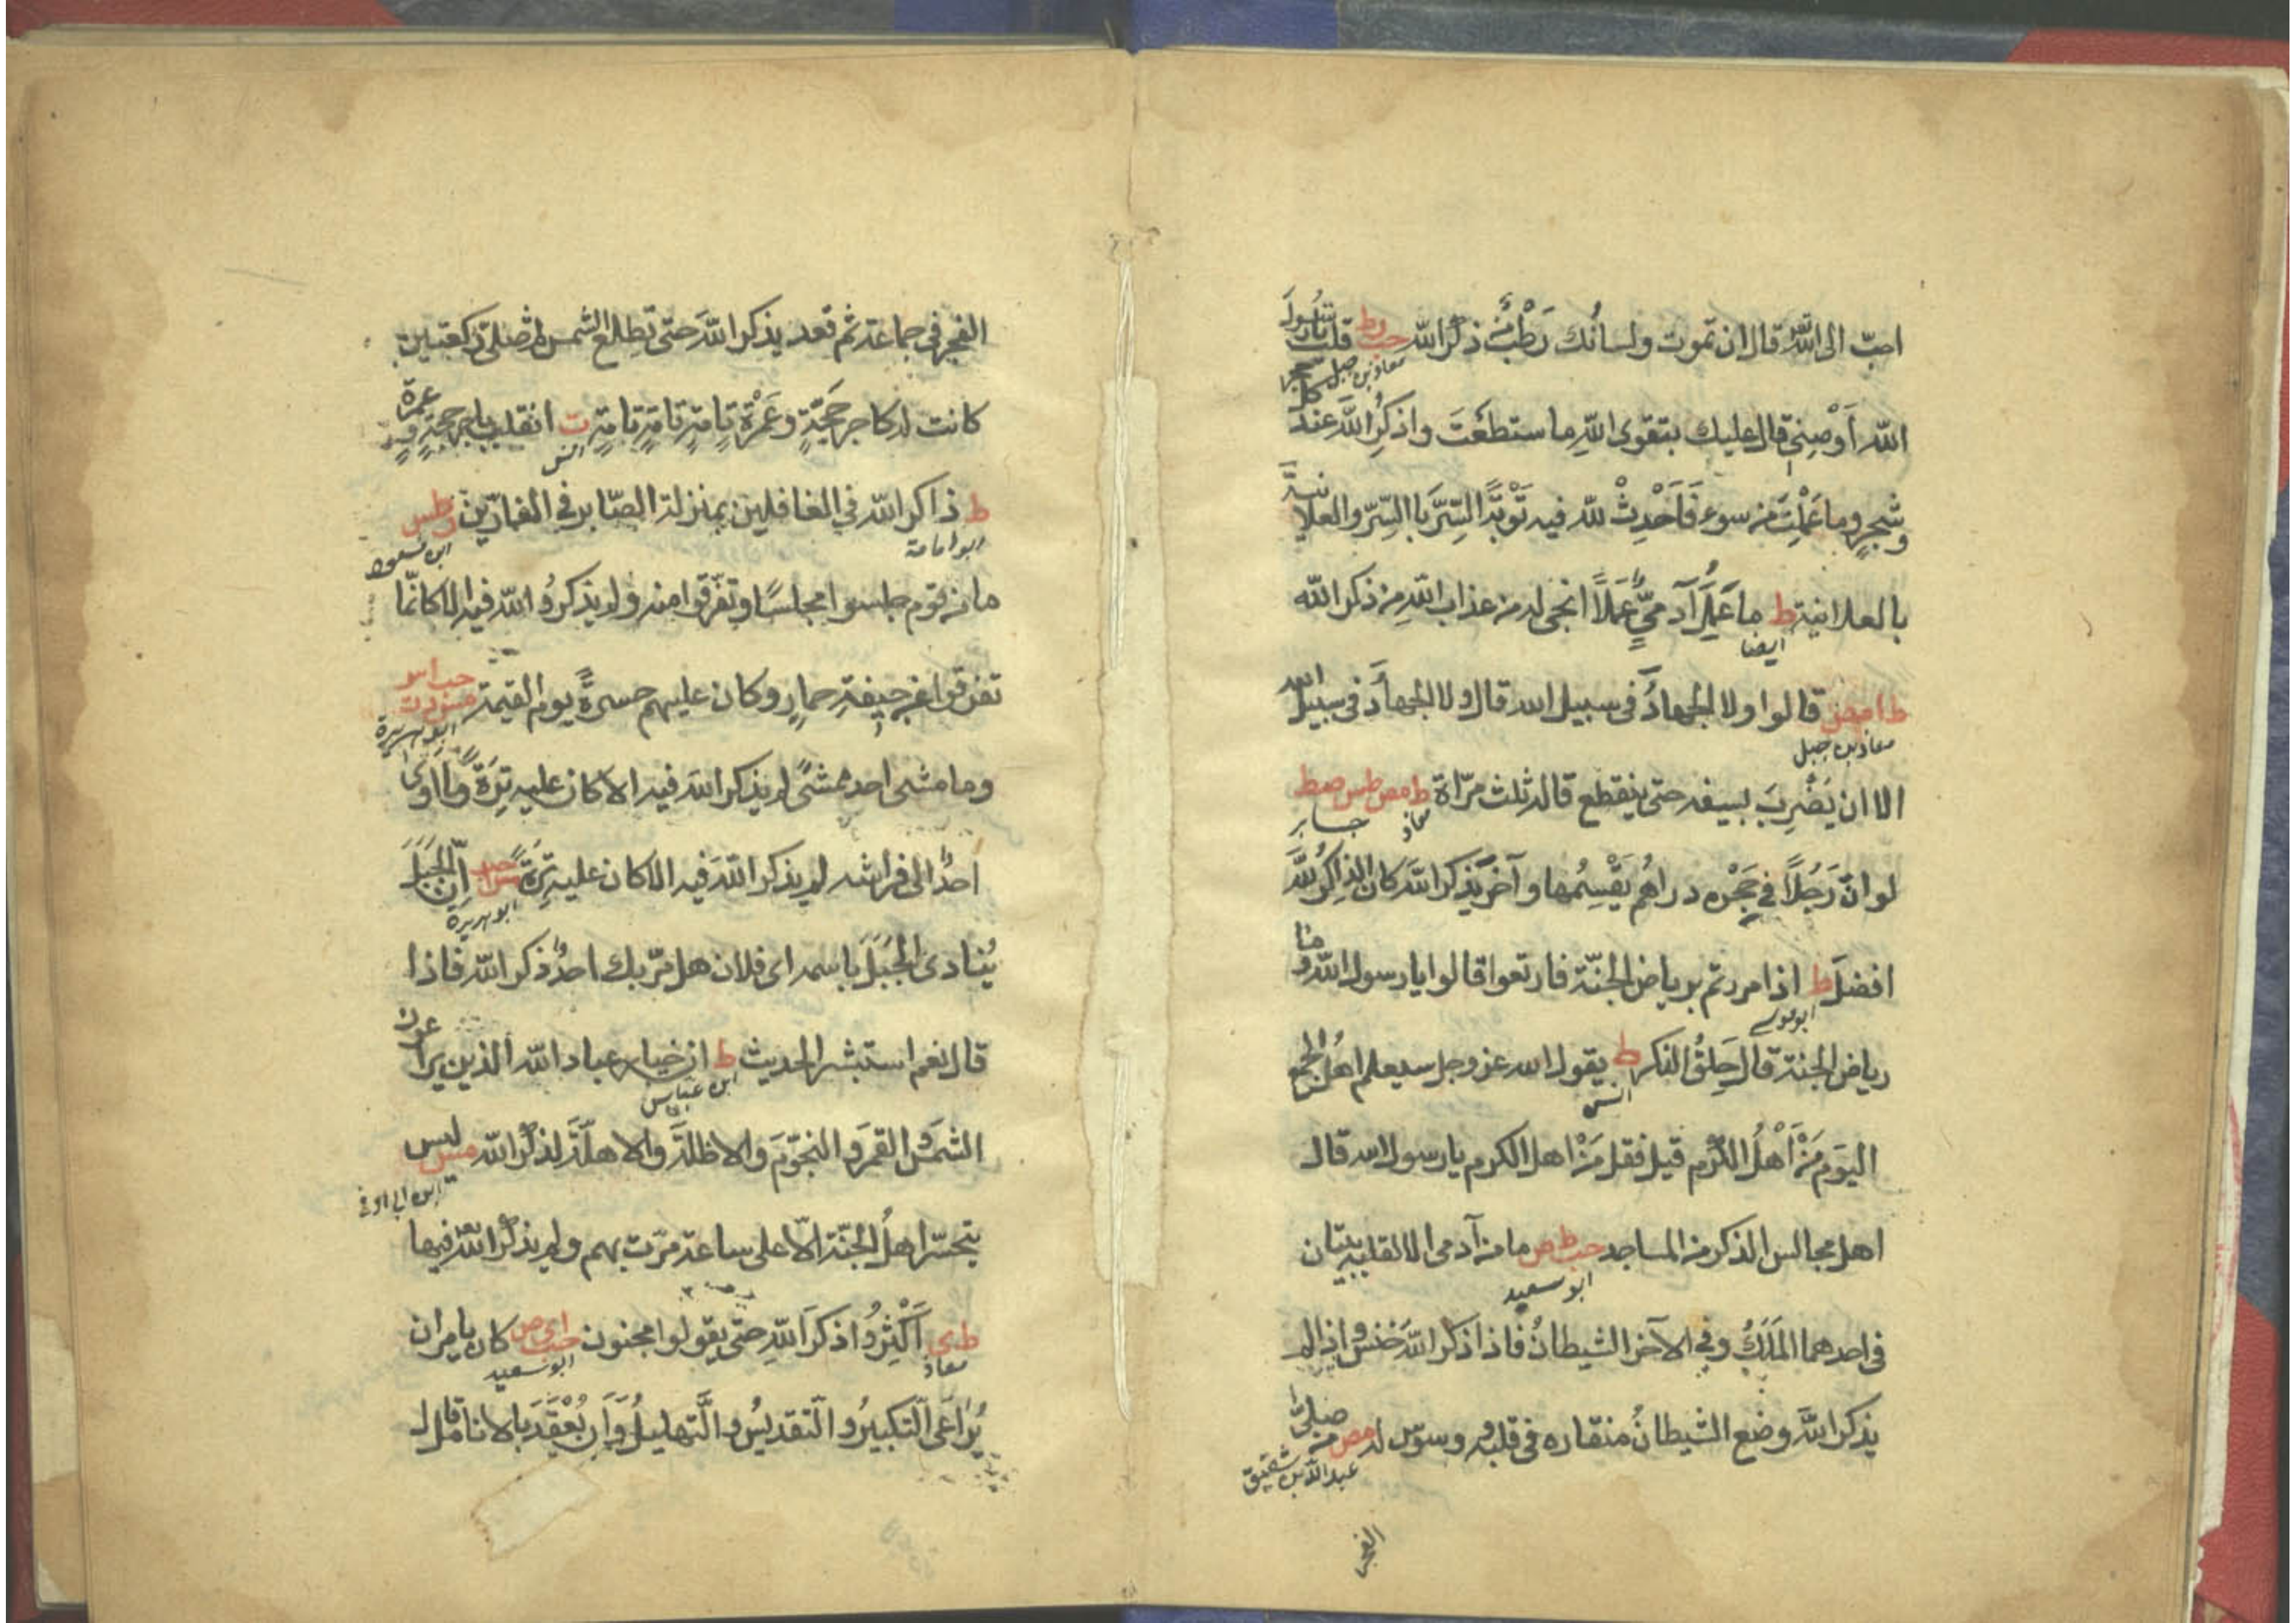 احبّ الى الله تعالى قال ان تموت ولسانُك رَطْبٌ من ذكر الله حب ر ط قلت يا رسول
معاذ بن جبل
الله أَوْصِنِي قال عليك بتقوى اللهِ ما ستطعْتَ واذكرِ اللهَ عند كل حجر
وشجرٍ وما عَمِلْتَ من سوءٍ فَاَحْدِثْ لله فيه تَوْبَةً السِّرَّ بالسِّرّ والعلانيةَ
بالعلانية ط ما عَمِلَ آدميٌّ عملاً انجى له من عذاب اللهِ من ذكر الله
ايضا
ط ا مص قالوا ولا الجهادُ فى سبيل الله قال ولا الجهادُ فى سبيل الله
معاذ بن جبل
الا ان يَضْرِبَ بسيفه حتى ينقطع قاله ثلث مرّاة ط مص طس صط
معاذ جابر
لو انّ رَجُلاً في حَجْرِه دراهُم يقْسِمُها وآخرَ يذكر الله كان الذاكرُ للهِ
افضلَ ط اذا مررتم برياض الجنّة فارتعوا قالوا يا رسول الله وما
ابو موسى
رياض الجنة قال حِلَقُ الذكر ط يقول الله عز وجل سيعلم اهل الجمع
انس
اليوم مَنْ اَهْلُ الكرم قيل فقل مَنْ اهل الكرم يا رسول الله قال
اهل مجالس الذكر من المساجد حب ط ص ما من آدمى الا لقلبه بيتان
ابو سعيد
فى احدهما المَلَكُ وفي الآخر الشيطانُ فاذا ذكر اللهَ خنس واذا لم
يذكر اللهَ وضع الشيطانُ منقاره فى قلبه ووسوس له مص من صلى
عبد الله بن شقيق
الفجر
الفجر فى جماعة ثم قعد يذكر اللهَ حتى تَطلع الشمس ثم صلى ركعتين
كانت له كاجر حجّةٍ وعَمْرةٍ تامةٍ تامةٍ تامةٍ ت انقلب باجر حجةٍ وعمرة
انس
ط ذاكر الله في الغافلين بمنزلة الصّابر في الفارّين ر طس
ابو امامة ابن مسعود
ما من قوم جلسوا مجلسًا وتفرّقوا منه ولم يذكرُوا الله فيه الا كانّما
تفرقوا عن جيفةِ حمارٍ وكان عليهم حسرةً يوم القيمة مس د ت حب ا س
ابو هريرة
وما مشى احد ممشىً لم يذكر الله فيه الا كان عليه تِرَةً وما اوى
احدٌ الى فراشه لم يذكر اللهَ فيه الا كان عليه تِرَةً س ا حب انّ الجَبَلَ
ابو هريرة
يُنادى الجَبَلَ باسمه اى فلان هل مرّ بك احدٌ ذكر الله فاذا
قال نعم استبشر الحديث ط ان خيار عباد الله الذين يراعون
ابن عباس
الشمسَ والقمرَ والنجومَ والاظلةَ والاهلّةَ لذكر الله مس ليس
ابن ابى اوفى
يتحسّر اهلُ الجنّة الّا على ساعة مرّت بهم ولم يذكرُوا الله تعالى فيها
ط ى اَكْثِرُوا ذكرَ اللهِ حتى يقولوا مجنون حب ا ى ص كان يامر ان
معاذ ابو سعيد
يُرَاعَى التكبيرُ والتقديسُ والتَّهليلُ وَأن يُعْقَدَ بالانامل قال